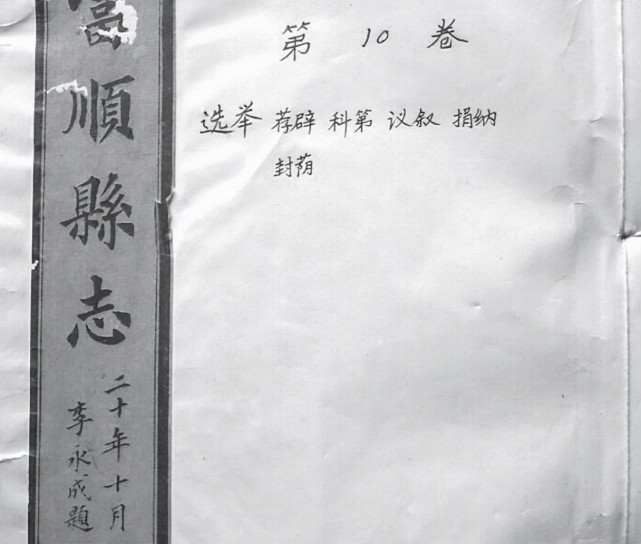 富順縣志
二十年十月
李永成題
第 10 卷
选举 荐辟 科第 议叙 捐纳
封荫